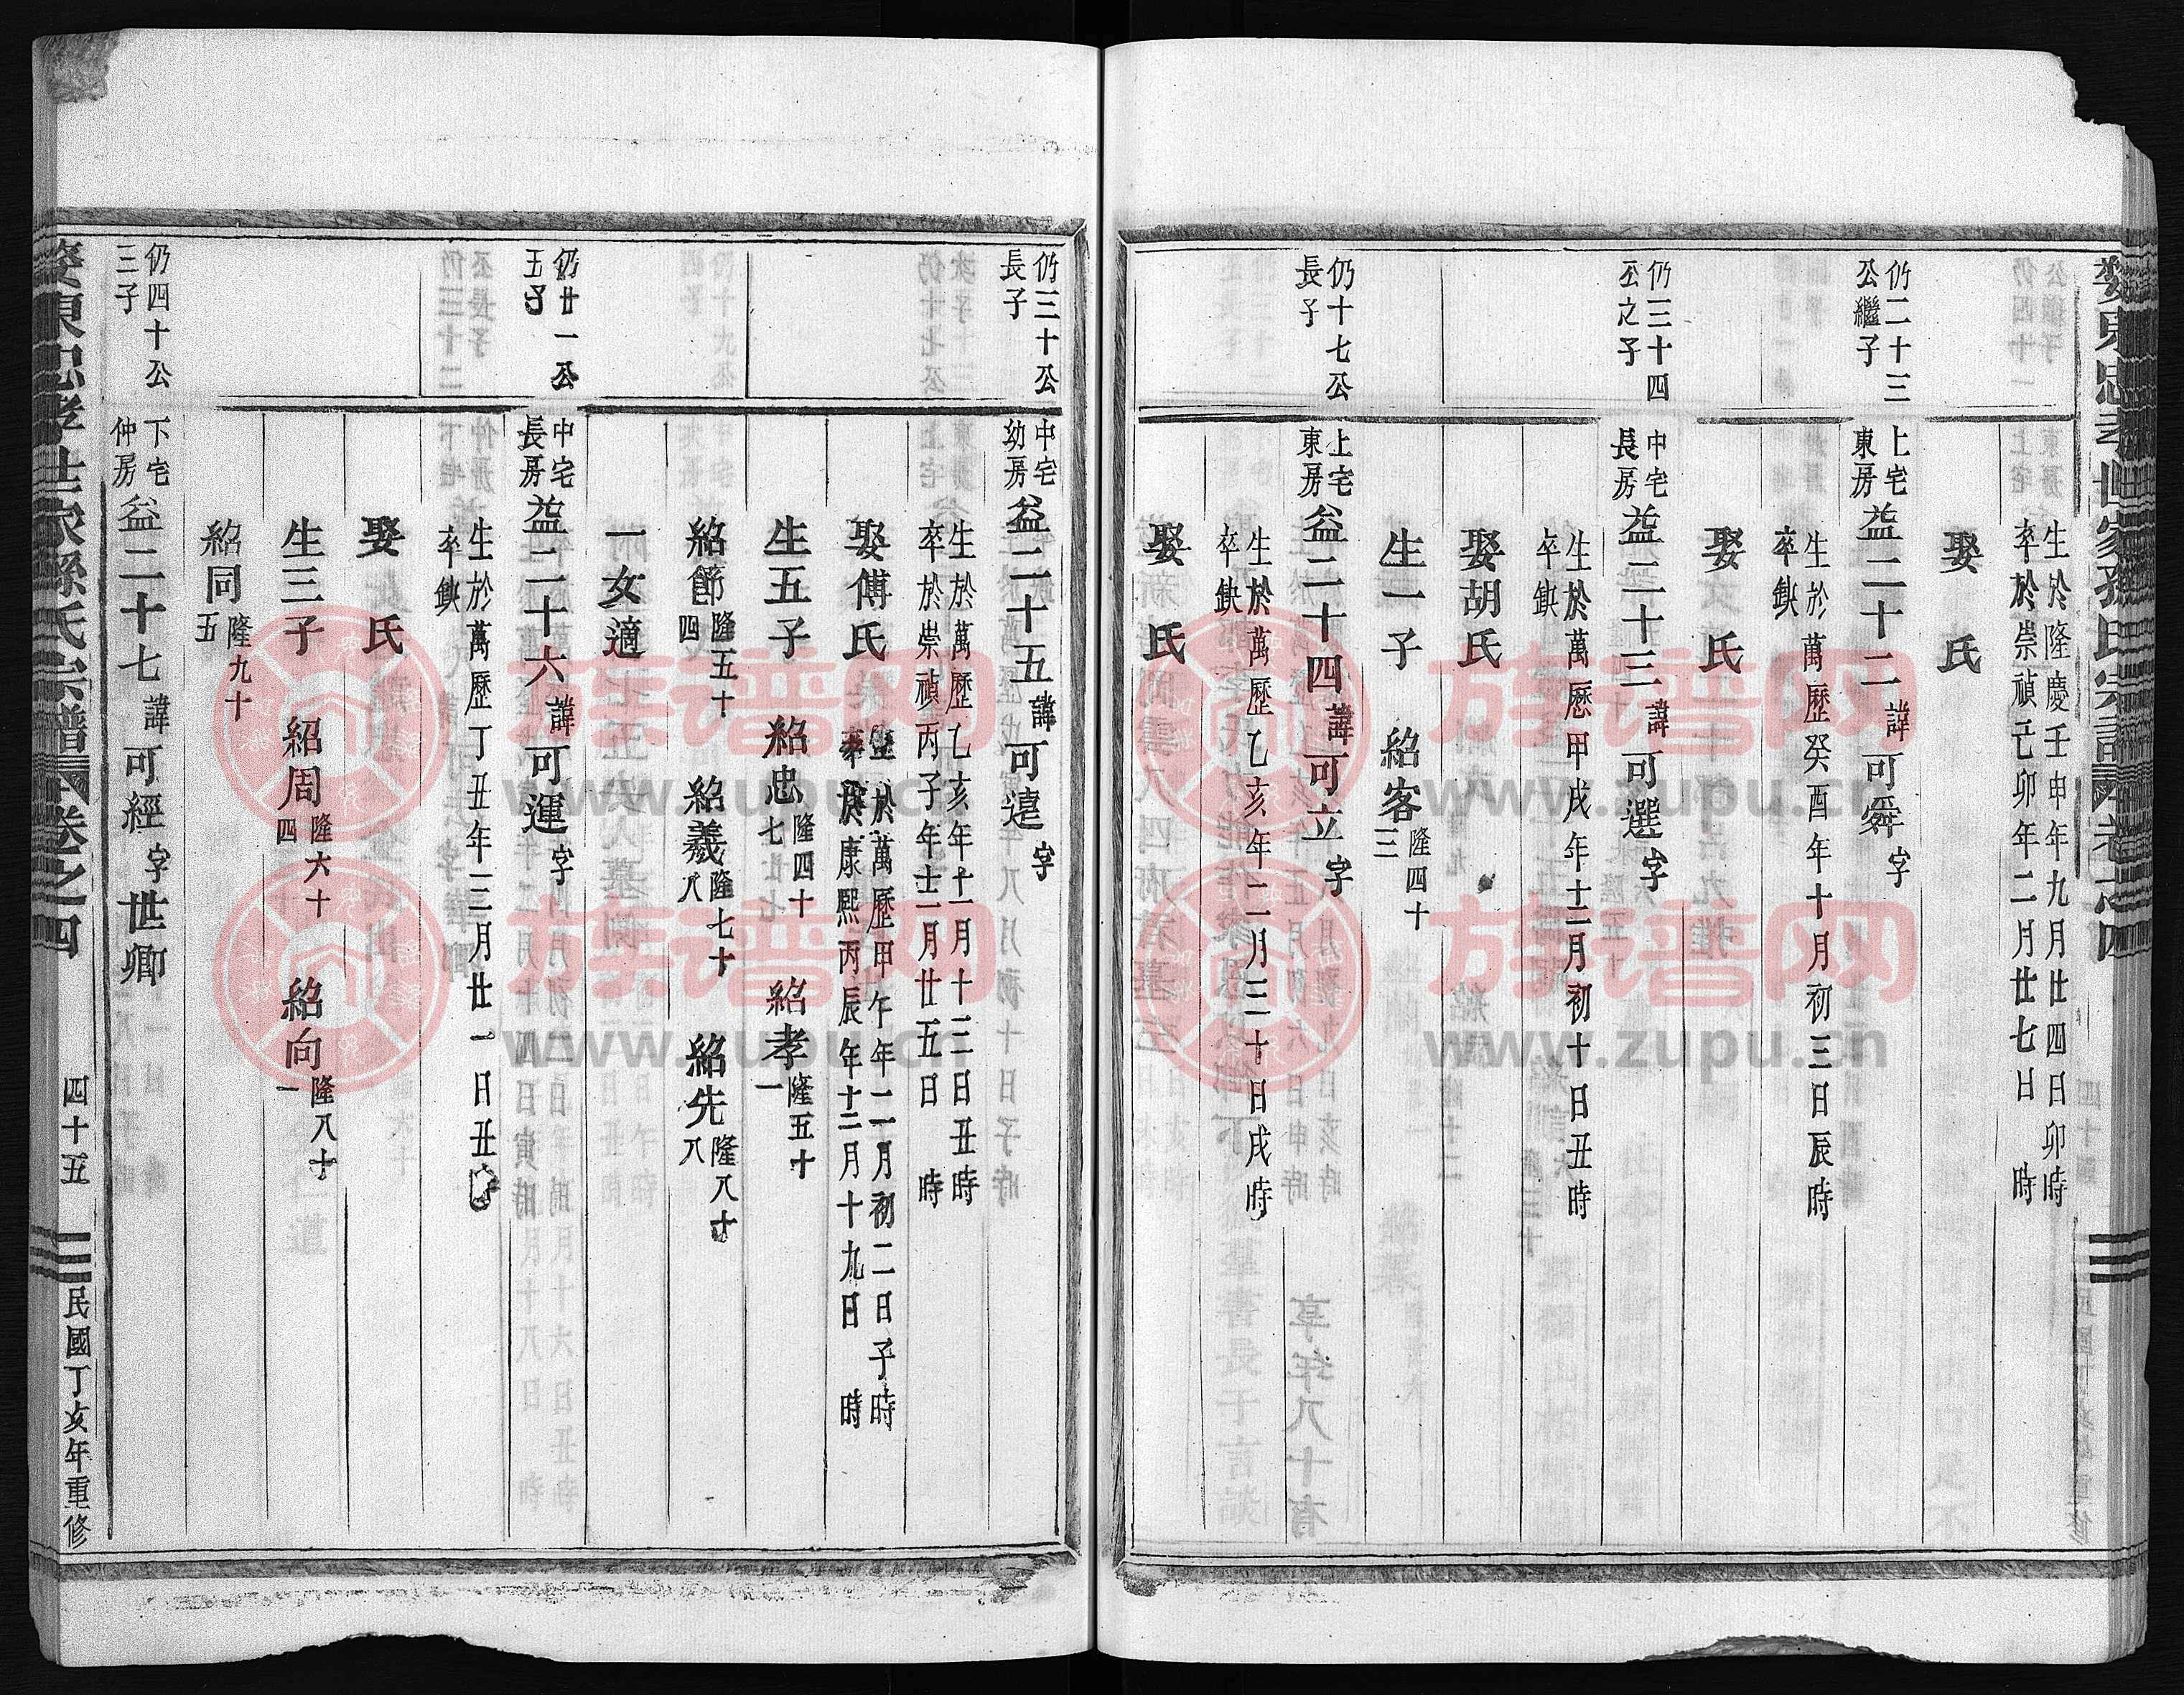 生於隆慶壬申年九月廿四日卯時
卒於崇禎己卯年二月廿七日 時
娶 氏
仍二十三
公繼子
上宅
東房
益二十二諱可舜字
生於萬歷癸酉年十月初三日辰時
卒缺
娶 氏
仍三十四
公之子
中宅
長房
益二十三諱可選字
生於萬歷甲戌年十二月初十日丑時
卒缺
娶胡氏
生一子 紹客隆四十三
仍十七公
長子
上宅
東房
益二十四諱可立字
生於萬歷乙亥年二月三十日戌時
卒缺
娶 氏
仍三十公
長子
中宅
幼房
益二十五諱可遠字
生於萬歷乙亥年十一月十三日丑時
卒於崇禎丙子年十一月廿五日 時
娶傅氏
生於萬歷甲午年二月初二日子時
卒於康熙丙辰年十二月十九日 時
生五子 紹忠隆四十七 紹孝隆五十一
紹節隆五十四 紹義隆七十八 紹先隆八十八
一女適
仍廿一公
五子
中宅
長房
益二十六諱可運字
生於萬歷丁丑年三月廿一日丑時
卒缺
娶 氏
生三子 紹周隆六十四 紹向隆八十一
紹同隆九十五
仍四十公
三子
下宅
仲房
益二十七諱可經字世卿
婺東忠孝世家孫氏宗譜 卷之四 四十五 民國丁亥年重修
族谱网
www.zupu.cn
族谱网
www.zupu.cn
族谱网
www.zupu.cn
族谱网
www.zupu.cn